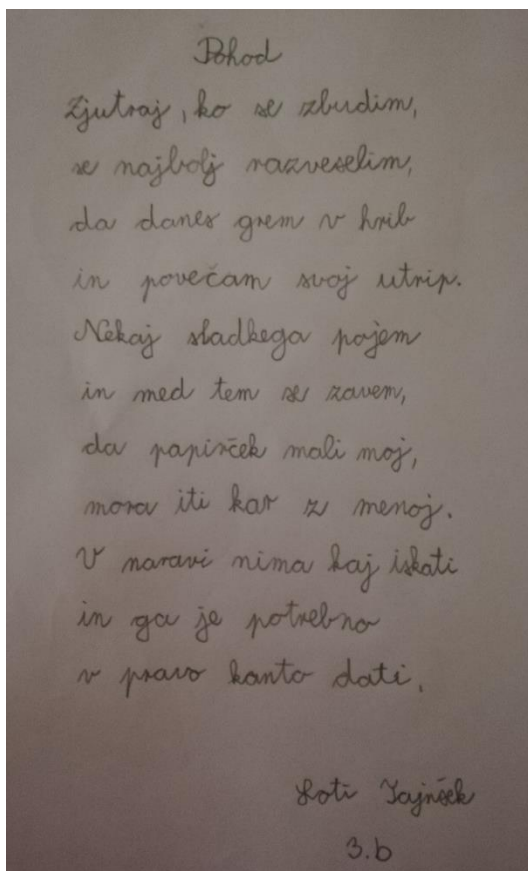 Pohod
Zjutraj, ko se zbudim,
se najbolj razveselim,
da danes grem v hrib
in povečam svoj utrip.
Nekaj sladkega pojem
in med tem se zavem,
da papirček mali moj,
mora iti kar z menoj.
V naravi nima kaj iskati
in ga je potrebno
v pravo kanto dati.
Loti Jajnšek
3.b